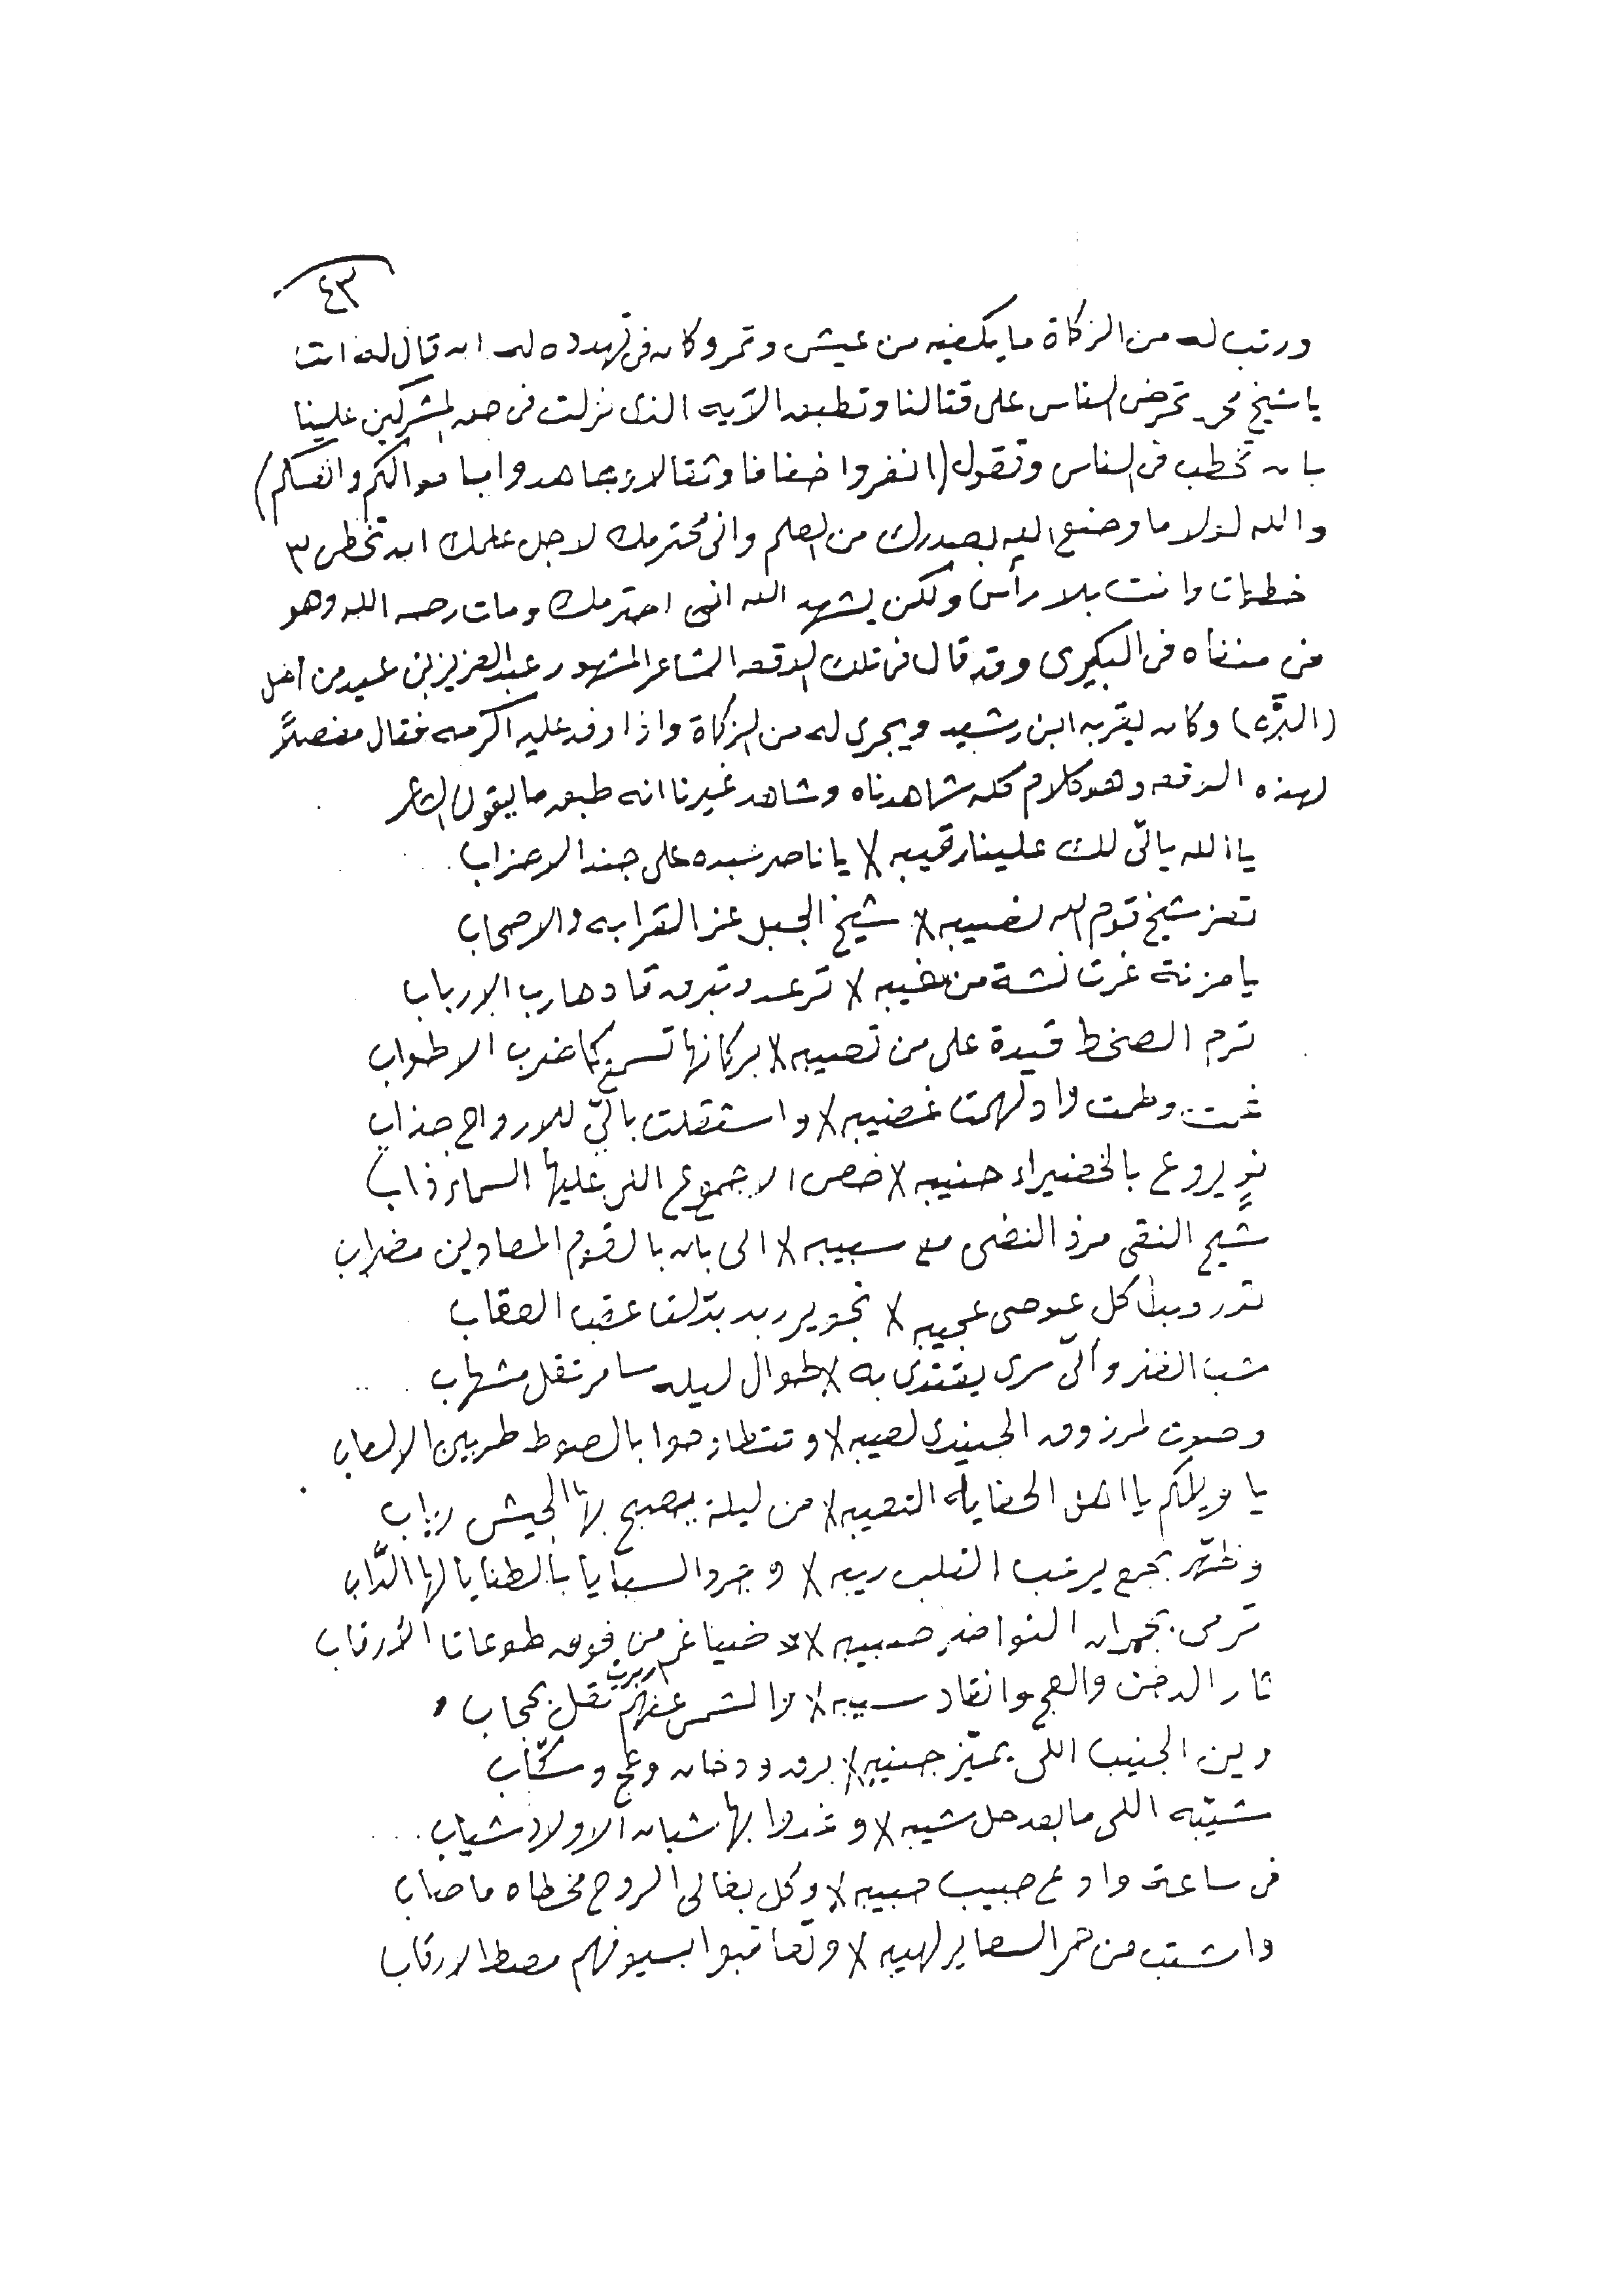 ٤٣
ورتب له من الزكاة ما يكفيه من عيش وتمر وكان في تهدده له ان قال له انت
يا شيخ محمد تحرض الناس على قتالنا وتطبق الآيه الذي نزلت في حق المشركين علينا
بان تخطب في الناس وتقول (انفروا خفافا وثقالا وجاهدوا باموالكم وانفسكم)
والله لولا ما وضع الله بصدرك من العلم واني محترمك لاجل علمك ان تخطى ٣
خطوات وانت بلا رأس ولكن يشهد الله انني احترمك ومات رحمه الله وهو
في منفاه في البكيري وقد قال في تلك الوقعه الشاعر المشهور عبدالعزيز بن عبيد من اهل
(البره) وكان يقربه ابن رشيد ويجري له من الزكاة واذا وفد عليه اكرمه فقال مفصلاً
لهذه الوقعه وهو كلام كله شاهدناه وشاهد غيرنا انه طبق ما يقول الشاعر
يا الله يالّي لك علينا رقيبه / يا ناصر عبده على جند الاحزاب
تعز شيخ قوم الله نصيبه / شيخ الجبل عز القرابه والاصحاب
يا مزنة غرت نشة من مغيبه / ترعد وتبرق قادها رب الارباب
ترم الصخط قيدة على من تصيبه / بركانها تسمع كما ضرب الاطواب
غمت وطمت وادلهمت غضيبه / واستقلت بالّي للارواح جذاب
نوٍ يروع بالخضيراء حنيبه / خص الاجموع اللي عليها السماء ذاب
شيخ النقى مرذ النضى مع سبيبه / الى بان بالقوم المعادين مضراب
كل عوصى عجيبه / تجوير ربد
شبا الفنر والّي سرى يقتدي به / طوال ليله سامر تقل مشهاب
وصوت لمرزوق الجنيدي لعيبه / بالصوط طربين الالعاب
يا ويلكم يا اهل الحفايله التعيبه / من ليلة يصبح بها الجيش رياب
بجمع يرعب القلب ريبه / وجرد السبايا بالطنايا لها الدّاب
ترمى بجمران النواضر صبيبه / ضياغم من فوق طوعات الأرقاب
ثار الدخن والعج وانقاد سبيبه / والشمس عنهم ادبرت تقل بحجاب
وين الجنيب اللي يميّز جنيبه / برق ودخان وعج وسكّاب
شيّبه اللي ما بعد حل شيبه / وغدوا بها شبان الاولاد شياب
في ساعة وادع حبيب حبيبه / وكل بغالي الروح مخطاه ما صاب
واشتب من حمر السعاير لهيبه / وتعاقبوا بسيوفهم مصط الارقاب